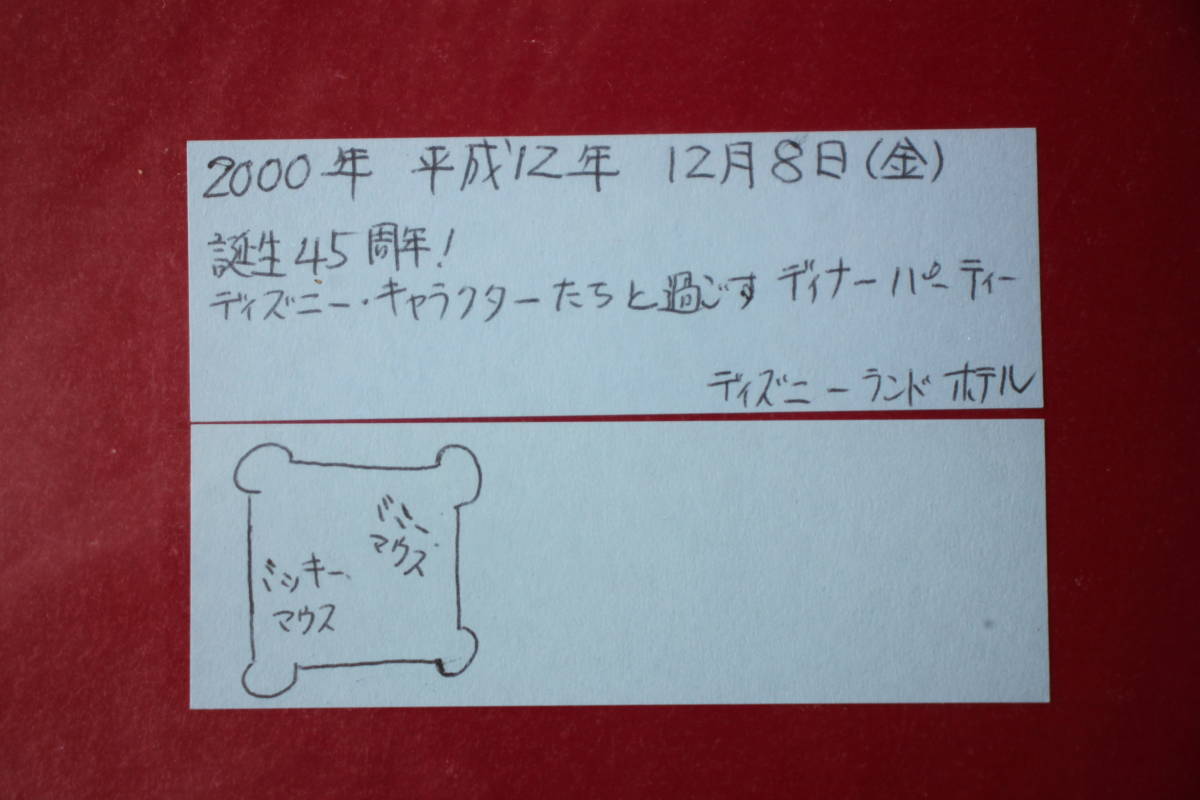 2000年 平成12年 12月8日(金)
誕生45周年!
ディズニー・キャラクターたちと過ごす ディナーパーティー
ディズニーランドホテル
ミニー
マウス
ミッキー
マウス